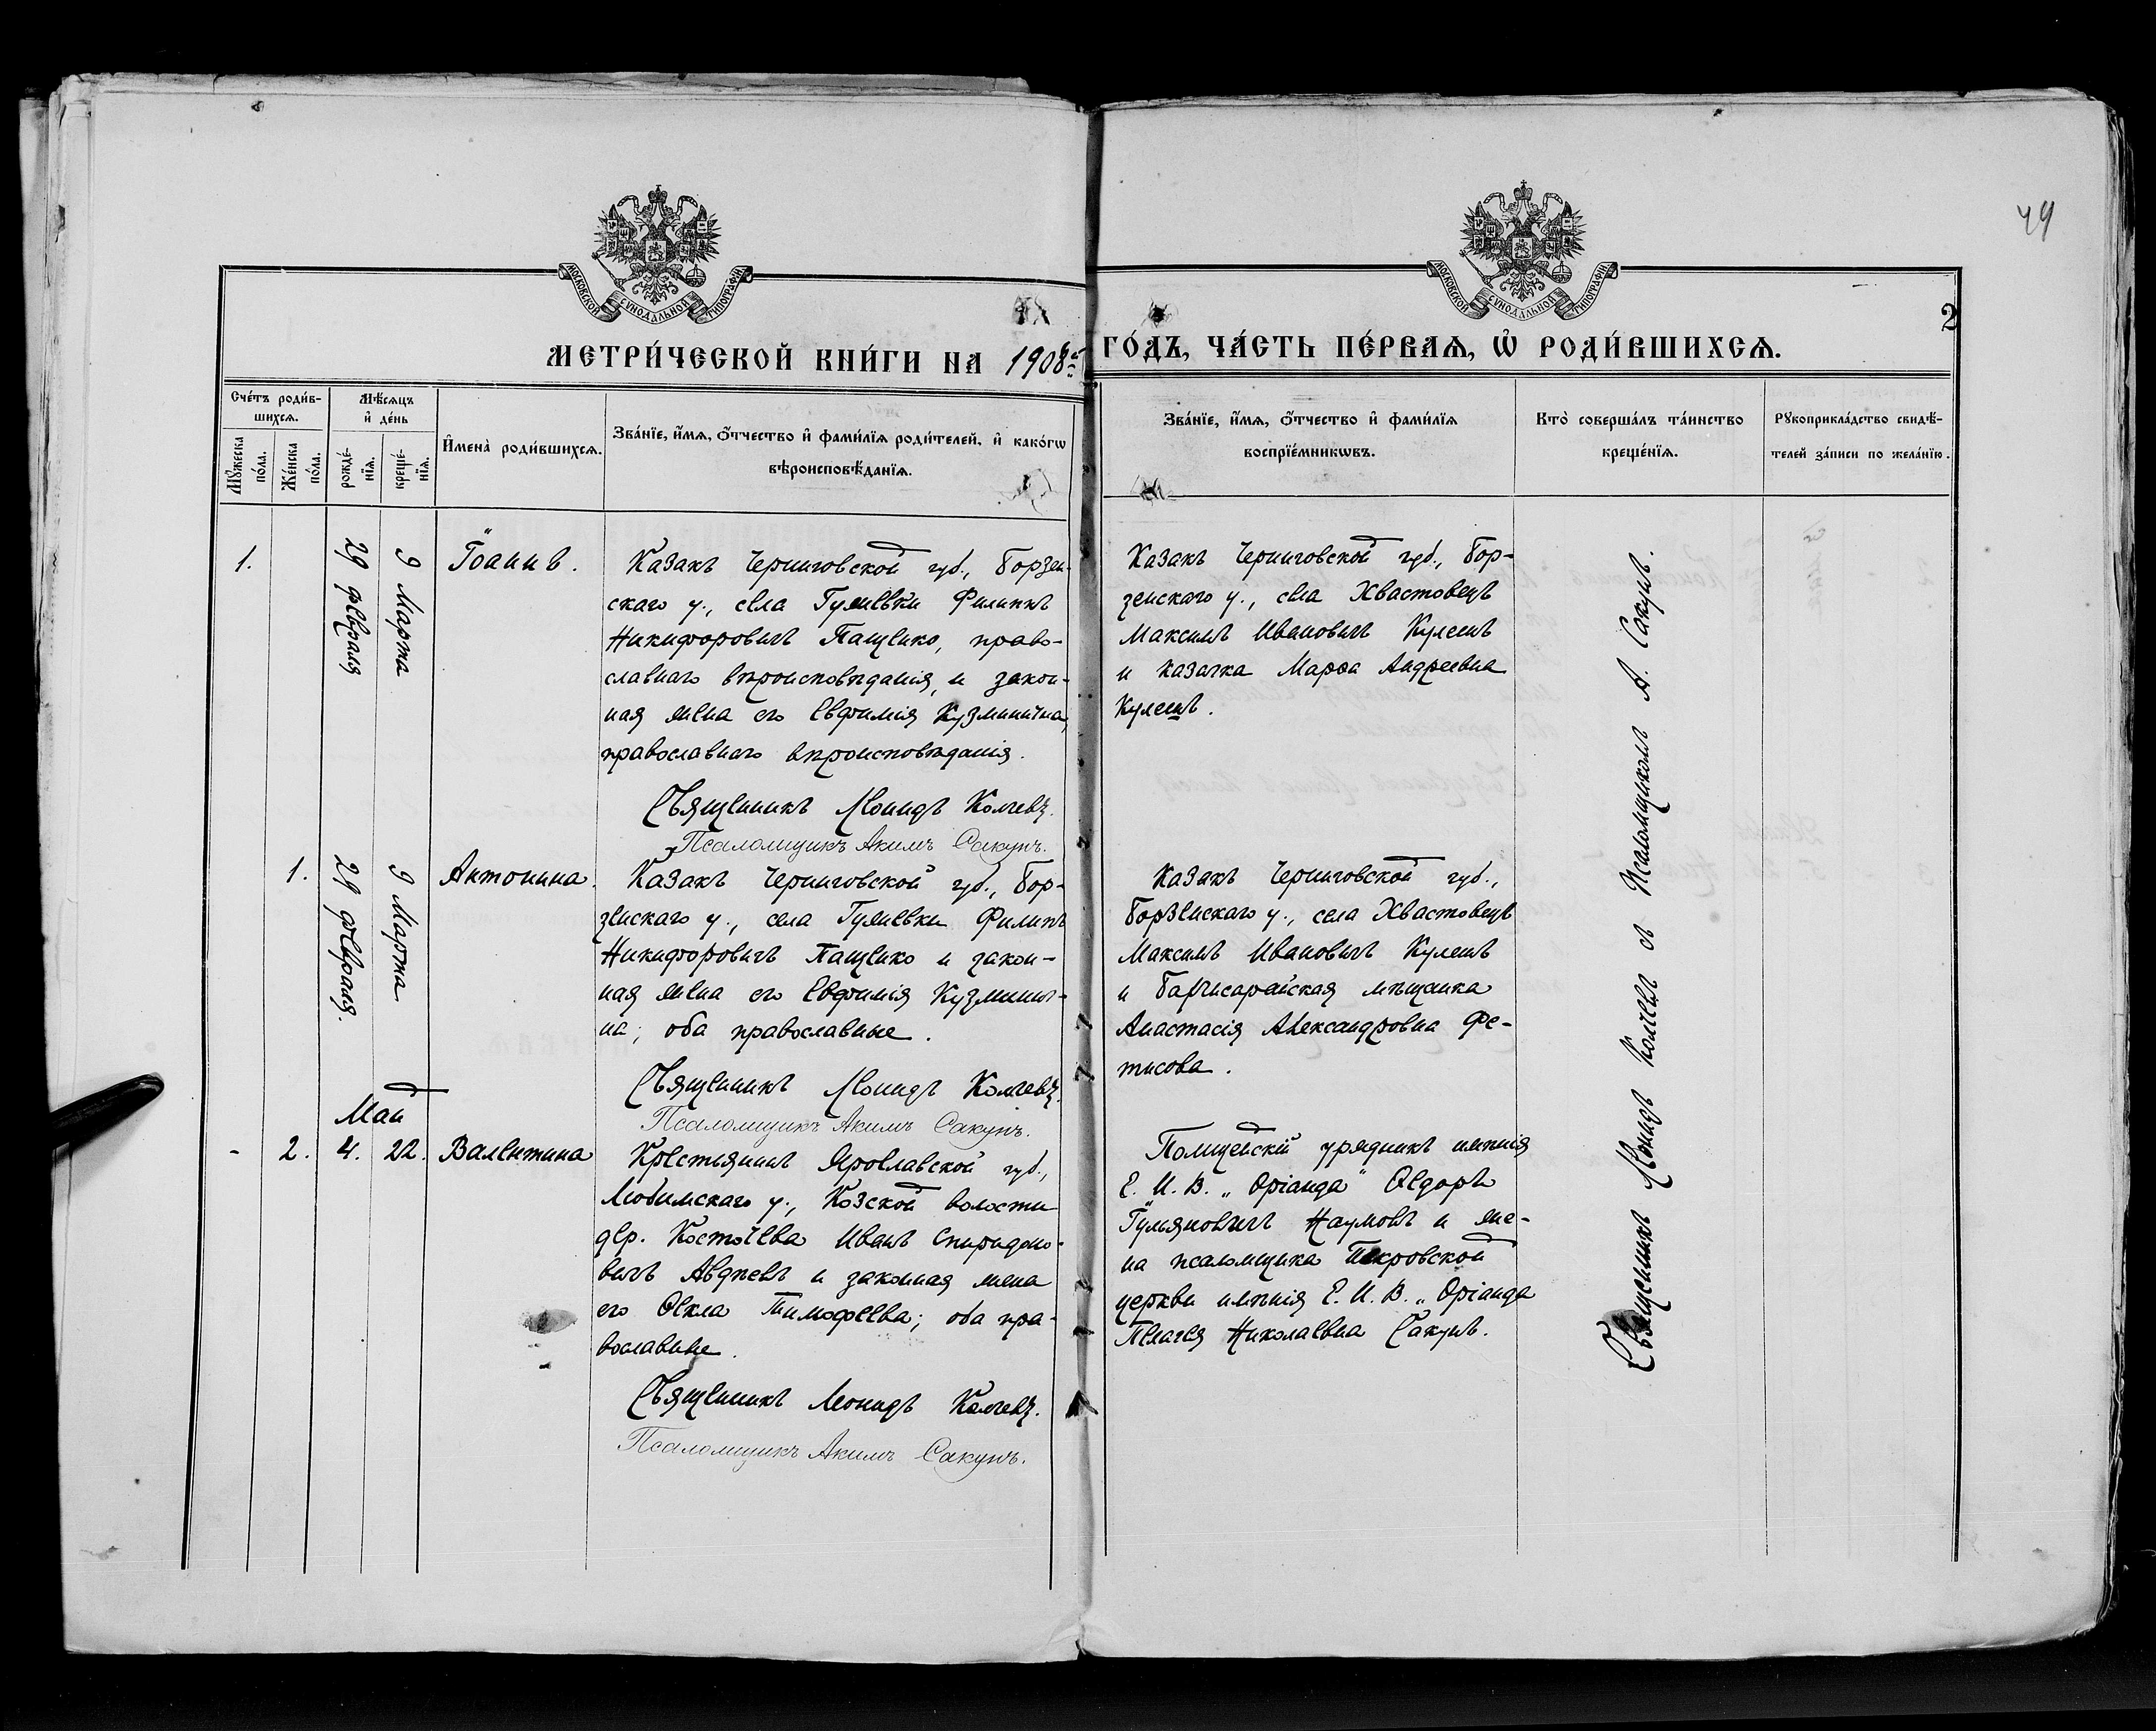 49
МОСКОВСКОЙ СѴНОДАЛЬНОЙ ТИПОГРАФІИ
МОСКОВСКОЙ СѴНОДАЛЬНОЙ ТИПОГРАФІИ
2
МЕТРИ́ЧЕСКОЙ КНИ́ГИ НА 1908й ГО́ДЪ, ЧА́СТЬ ПЕ́РВАѦ, Ѡ҆ РОДИ́ВШИХСѦ.
Сче́тъ роди́в-
шихсѧ.
Мꙋ́жеска по́ла.
Же́нска по́ла.
Мѣ́сѧцъ
и҆ де́нь
рожде́-
нїѧ.
креще́-
нїѧ.
И҆мена̀ роди́вшихсѧ.
Зва́нїе, и҆́мѧ, ѻ҆́тчество и҆ фами́лїѧ роди́телей, и҆ како́гѡ
вѣроисповѣ́данїѧ.
Зва́нїе, и҆́мѧ, ѻ҆́тчество и҆ фами́лїѧ
воспрїе́мникѡвъ.
Кто̀ соверша́лъ та́инство
креще́нїѧ.
Рꙋкоприкла́дство свидѣ́-
телей за́писи по жела́нїю.
1.
29 февраля
9 Марта
Іоаннъ.
Казакъ Черниговской губ., Борзен-
скаго у., села Гужевки Филиппъ
Никифоровичъ Пащенко, право-
славнаго вѣроисповѣданія, и закон-
ная жена его Евфимія Кузминична,
православнаго вѣроисповѣданія.
Священникъ Леонидъ Колчевъ.
Псаломщикъ Акимъ Сакунъ.
Казакъ Черниговской губ., Бор-
зенскаго у., села Хвастовецъ
Максимъ Ивановичъ Кулешъ
и казачка Марѳа Андреевна
Кулешъ.
1.
29 февраля.
9 Марта
Антонина.
Казакъ Черниговской губ., Бор-
зенскаго у., села Гужевки Филипъ
Никифоровичъ Пащенко и закон-
ная жена его Евфимія Кузминич-
на; оба православные.
Священникъ Леонидъ Колчевъ.
Псаломщикъ Акимъ Сакунъ.
Казакъ Черниговской губ.,
Борзенскаго у., села Хвастовецъ
Максимъ Ивановичъ Кулешъ
и Бахчисарайская мѣщанка
Анастасія Александровна Фе-
тисова.
Май
-
2.
4.
22.
Валентина
Крестьянинъ Ярославской губ.,
Любимскаго у., Козской волости
дер. Костычева Иванъ Спиридоно-
вичъ Авдѣевъ и законная жена
его Ѳекла Тимофеева; оба пра-
вославные.
Священникъ Леонидъ Колчевъ.
Псаломщикъ Акимъ Сакунъ.
Полицейскій урядникъ имѣнія
Е. И. В. „Оріанда" Ѳедоръ
Гульяновичъ Наумовъ и же-
на псаломщика Покровской
церкви имѣнія Е. И. В. „Оріанда
Пелагея Николаевна Сакунъ.
Священникъ Леонидъ Колчевъ съ Псаломщикомъ А. Сакунъ.